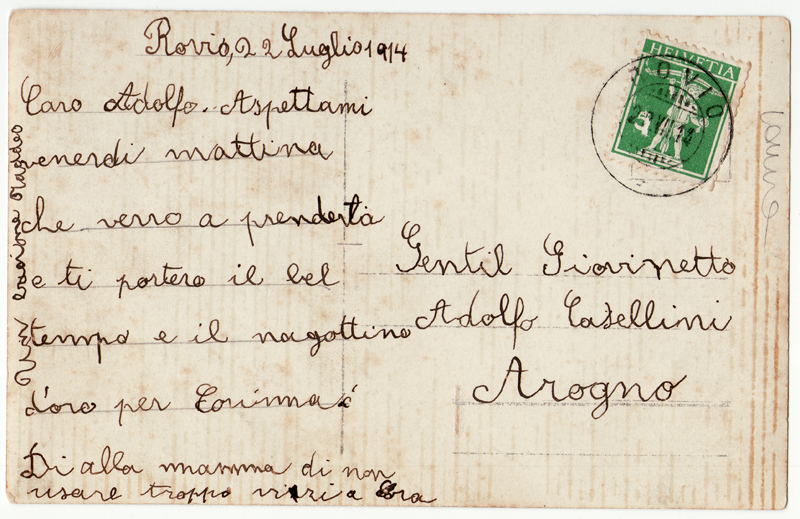 Rovio, 22 Luglio 1914
Caro Adolfo. Aspettami
venerdi mattina
che verro a prenderti
e ti portero il bel
tempo e il nagottino
d'oro per
Di alla mamma di non
usare troppo
Gentil Giovinetto
Adolfo Casellini
Arogno
HELVETIA
ROVIO